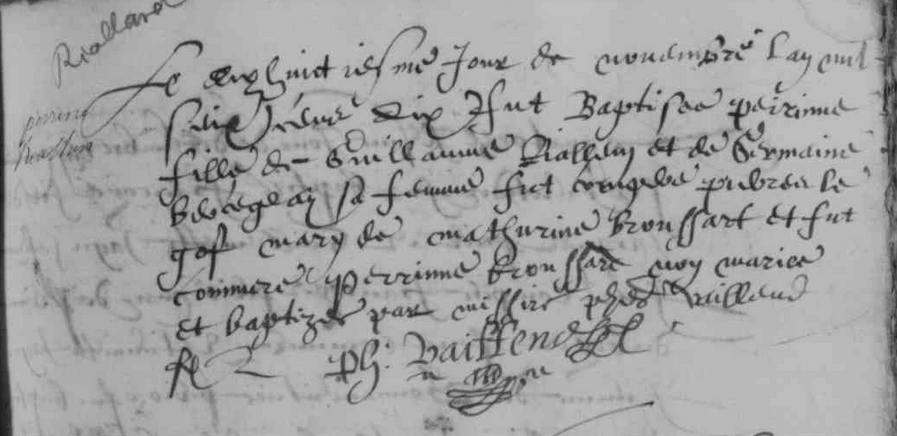 Rialland
perrine
Le dixhuict iesme Jour de novembre l'an mil
six cens dix fut Baptisee perrinne
fille de Guillaume Riallen et de Germaine
sa femme fut compere pierres le
gof mary de mathurine broussart et fut
commere perrinne broussart non mariee
et baptizee par missire phes Vaillend
Ph: Vaillend